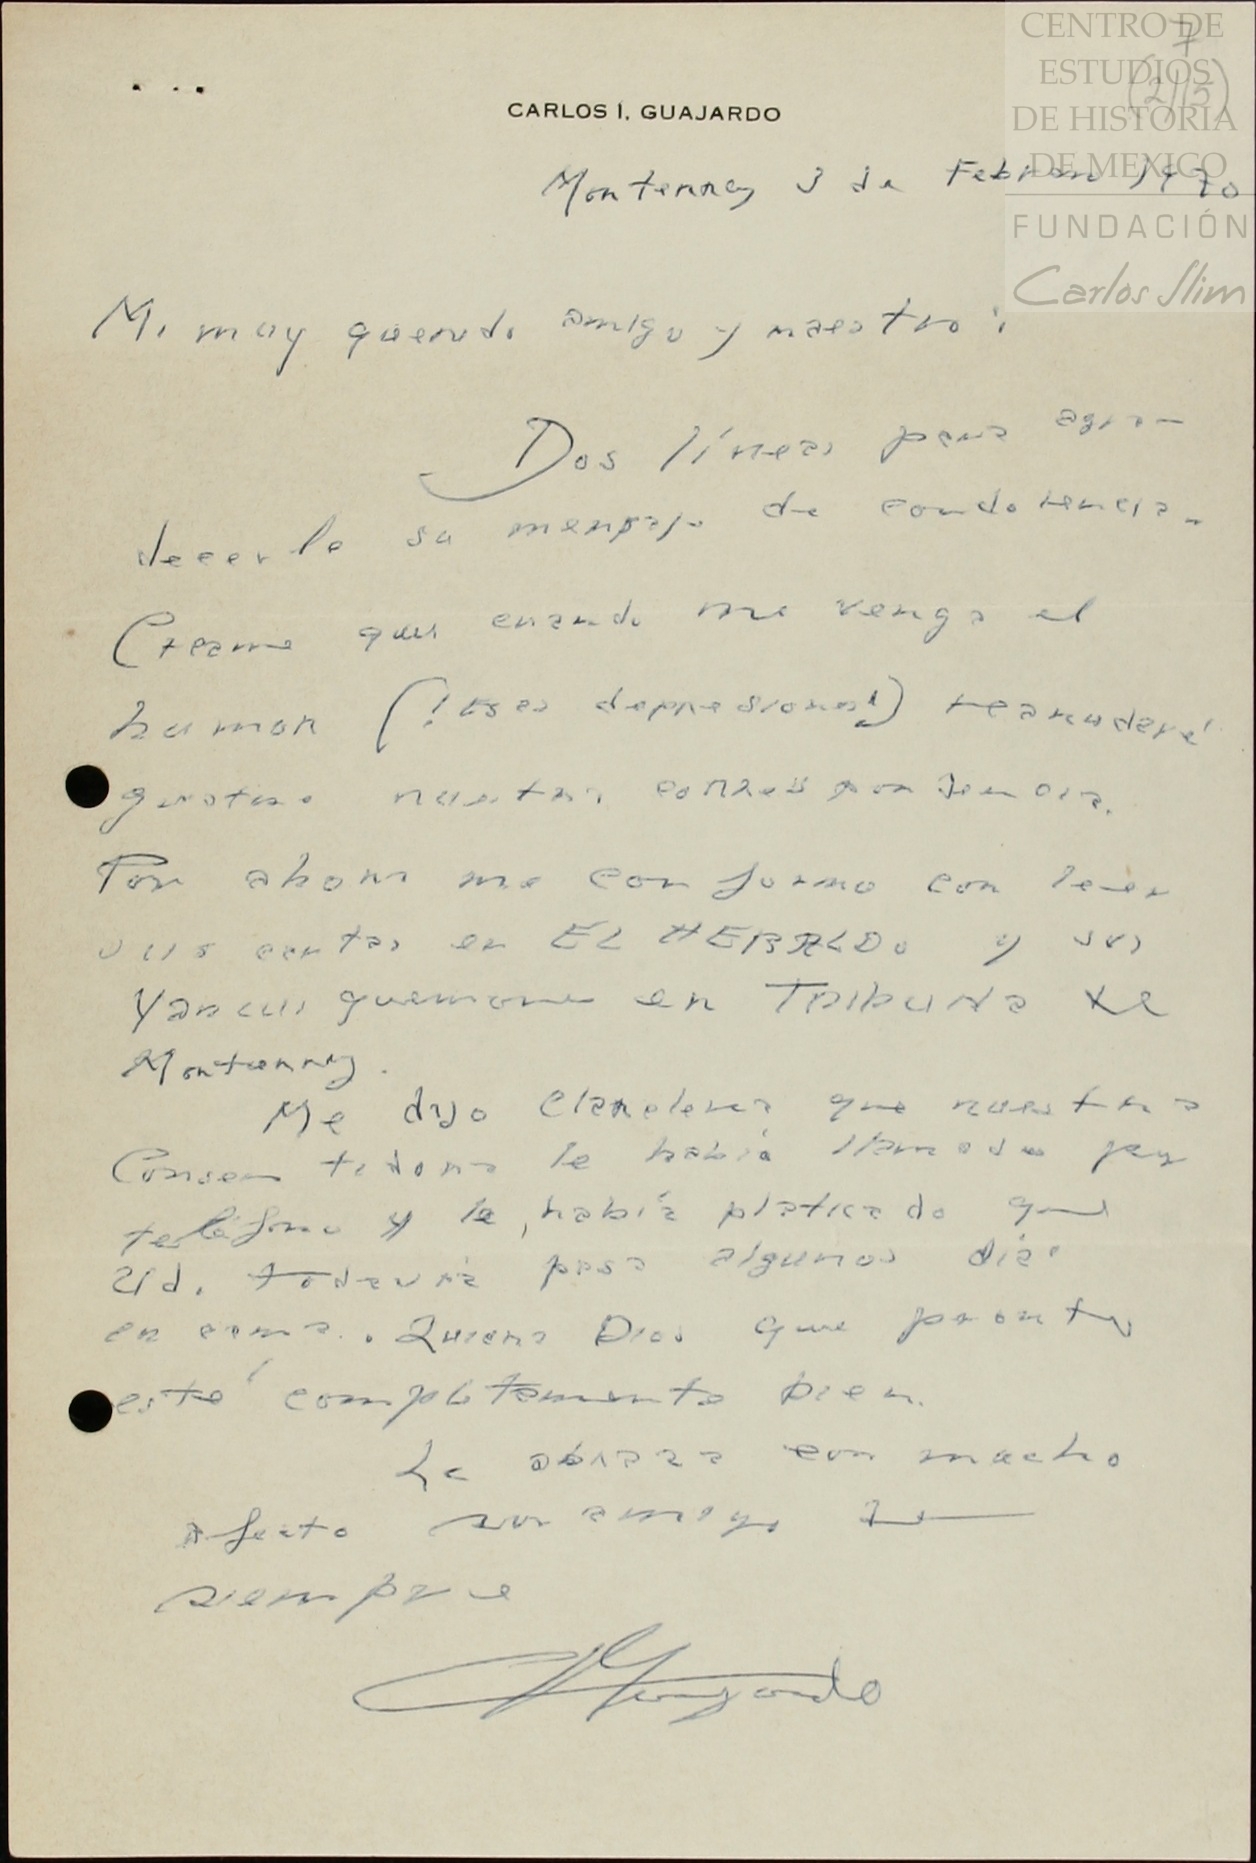 CENTRO DE
ESTUDIOS
DE HISTORIA
DE MEXICO
FUNDACIÓN
Carlos Slim
7
(2/15)
CARLOS I. GUAJARDO
Monterrey 3 de Febrero 1970
Mi muy querido amigo y maestro:
Dos líneas para agra-
decerle su mensaje de condolencia.
Creame que cuando me venga el
humor (!Esas depresiones!) reanudaré
gustoso nuestra correspondencia.
Por ahora me conformo con leer
sus cartas en EL HERALDO y sus
Yancuiquemone en Tribuna de
Monterrey.
Me dijo que nuestra
Consentidora le había llamado por
teléfono y le había platicado que
Ud. todavía pasa algunos días
en cama. Quiera Dios que pronto
esté completamente bien.
Le abraza con mucho
afecto su amigo de
siempre
Guajardo